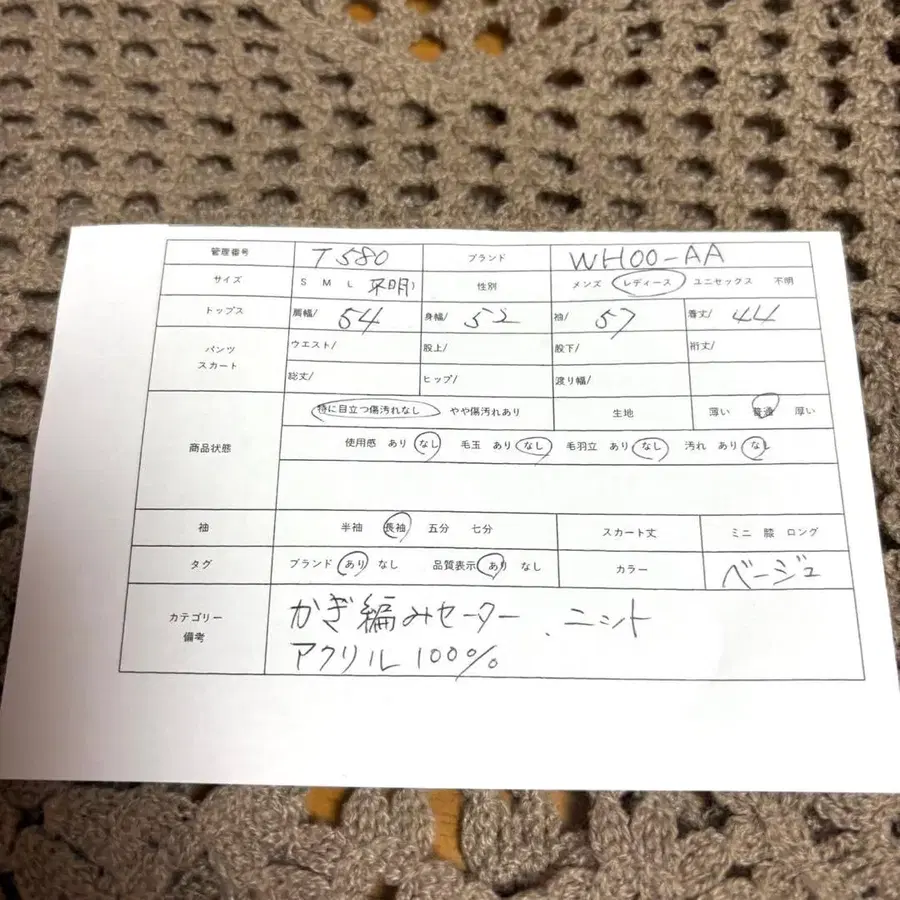 管理番号 T580 ブランド WHOO-AA
サイズ S M L 不明 性別 メンズ レディース ユニセックス 不明
トップス 肩幅/ 54 身幅/ 52 袖/ 57 着丈/ 44
パンツ スカート ウエスト/ 股上/ 股下/ 裄丈/
総丈/ ヒップ/ 渡り幅/
商品状態 特に目立つ傷汚れなし やや傷汚れあり 生地 薄い 普通 厚い
使用感 あり なし 毛玉 あり なし 毛羽立 あり なし 汚れ あり なし
袖 半袖 長袖 五分 七分 スカート丈 ミニ 膝 ロング
タグ ブランド あり なし 品質表示 あり なし カラー ベージュ
カテゴリー 備考 かぎ編みセーター、ニット
アクリル 100%